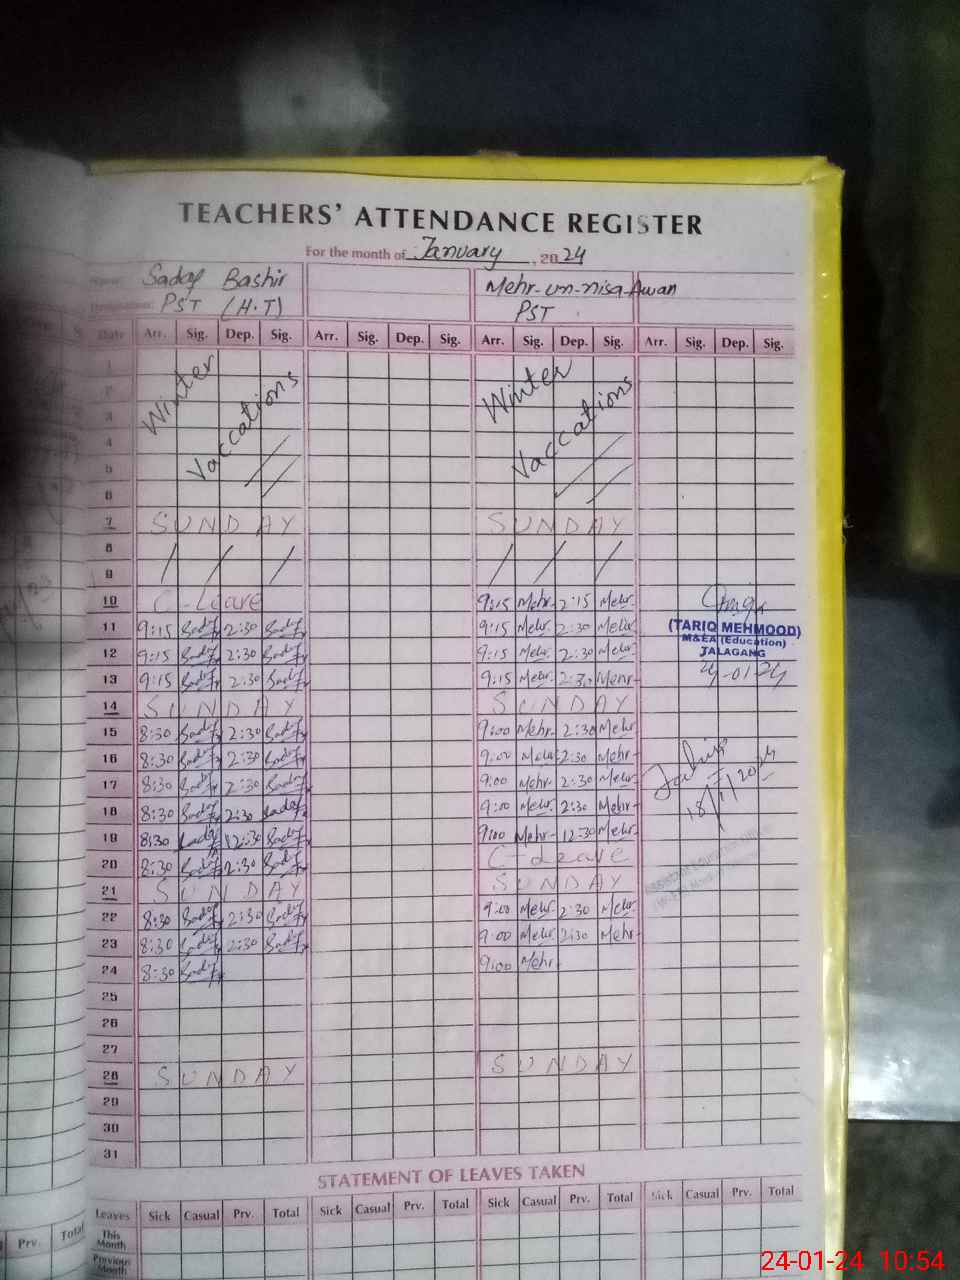 TEACHERS' ATTENDANCE REGISTER
For the month of January, 2024
Name: Sadaf Bashir Mehr-un-nisa Awan
PST (H.T) PST
Date Arr. Sig. Dep. Sig. Arr. Sig. Dep. Sig. Arr. Sig. Dep. Sig. Arr. Sig. Dep. Sig.
1
2
3
4
5
6
Winter Vaccations Winter Vaccations
7 SUNDAY SUNDAY
8
9
10 C-Leave 9:15 Mehr 2:15 Mehr
11 9:15 Sadaf 2:30 Sadaf 9:15 Mehr 2:30 Mehr
(TARIQ MEHMOOD)
M&EA (Education)
12 9:15 Sadaf 2:30 Sadaf 9:15 Mehr 2:30 Mehr
TALAGANG
13 9:15 Sadaf 2:30 Sadaf 9:15 Mehr 2:30 Mehr
-01-24
14 SUNDAY SUNDAY
15 8:30 Sadaf 2:30 Sadaf 9:00 Mehr 2:30 Mehr
16 8:30 Sadaf 2:30 Sadaf 9:00 Mehr 2:30 Mehr
17 8:30 Sadaf 2:30 Sadaf 9:00 Mehr 2:30 Mehr
18/1/2024
18 8:30 Sadaf 2:30 Sadaf 9:00 Mehr 2:30 Mehr
19 8:30 Sadaf 12:30 Sadaf 9:00 Mehr 12:30 Mehr
20 8:30 Sadaf 2:30 Sadaf C-Leave
21 SUNDAY SUNDAY
22 8:30 Sadaf 2:30 Sadaf 9:00 Mehr 2:30 Mehr
23 8:30 Sadaf 2:30 Sadaf 9:00 Mehr 2:30 Mehr
24 8:30 Sadaf 9:00 Mehr
25
26
27
28 SUNDAY SUNDAY
29
30
31
STATEMENT OF LEAVES TAKEN
Leaves Sick Casual Prv. Total Sick Casual Prv. Total Sick Casual Prv. Total Sick Casual Prv. Total
This Month
Previous Month
Prv. Total
24-01-24 10:54